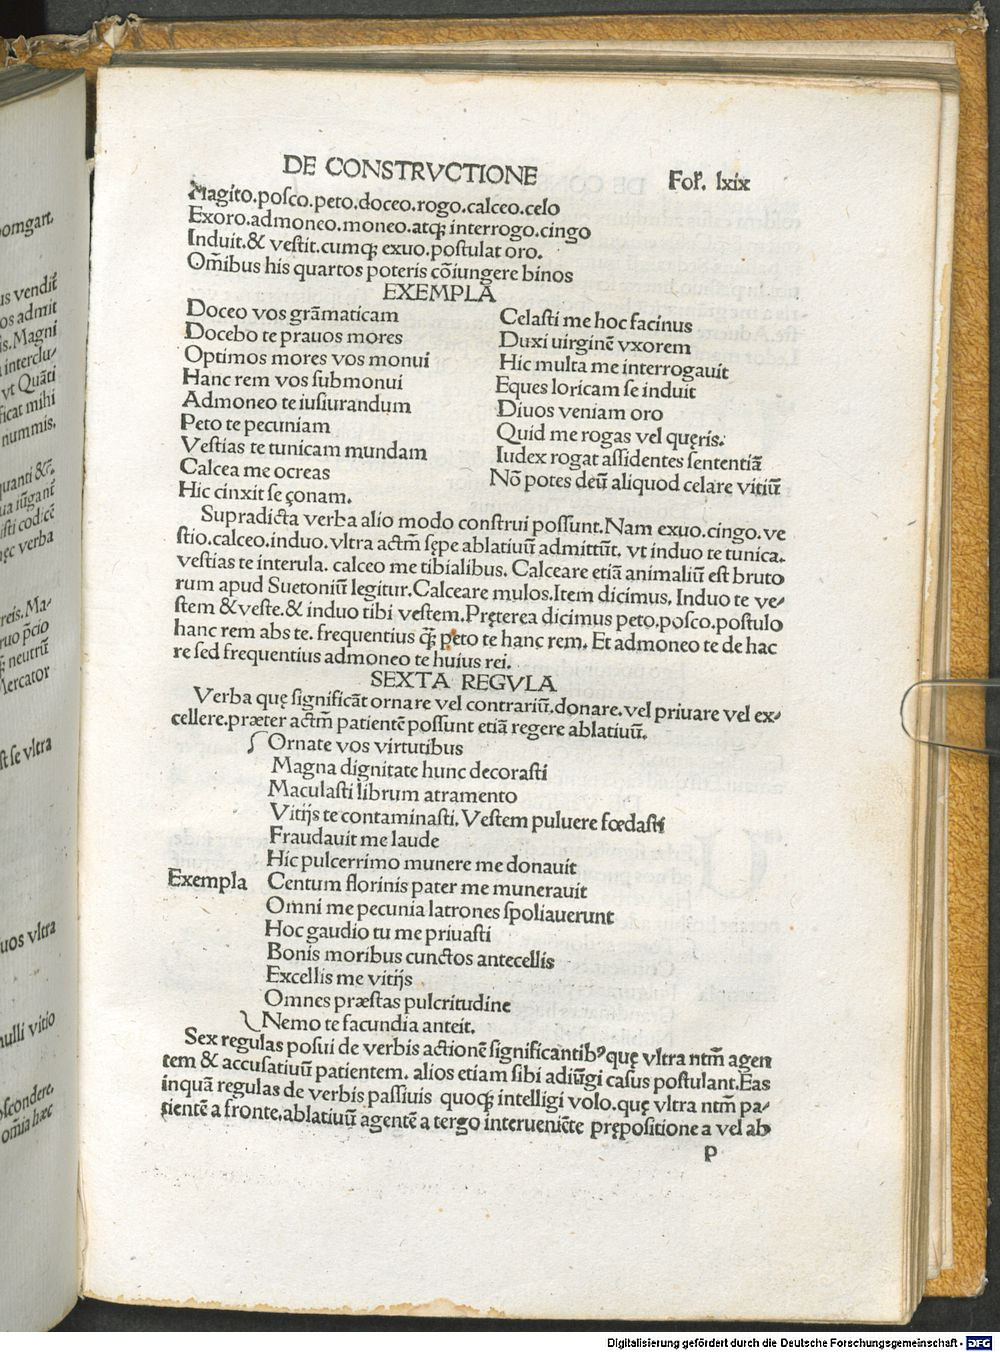 DE CONSTRVCTIONE Fol͛. lxix
Magito.posco.peto.doceo.rogo.calceo.celo
Exoro.admoneo.moneo.atqꝫ interrogo.cingo
Induit.& vestit.cumqꝫ exuo.postulat oro.
Om̄ibus his quartos poteris cōiungere binos
EXEMPLA
Doceo vos grāmaticam
Docebo te prauos mores
Optimos mores vos monui
Hanc rem vos submonui
Admoneo te iusiurandum
Peto te pecuniam
Vestias te tunicam mundam
Calcea me ocreas
Hic cinxit se çonam.
Celasti me hoc facinus
Duxi uirginē vxorem
Hic multa me interrogauit
Eques loricam se induit
Diuos veniam oro
Quid me rogas vel quęris.
Iudex rogat assidentes sententiā
Nō potes deū aliquod celare vitiū
Supradicta verba alio modo construi possunt.Nam exuo.cingo.ve
stio.calceo.induo.vltra actm̄ sępe ablatiuū admittūt. vt induo te tunica.
vestias te interula. calceo me tibialibus. Calceare etiā animaliū est bruto
rum apud Suetoniū legitur.Calceare mulos.Item dicimus. Induo te ve⸗
stem & veste.& induo tibi vestem.Pręterea dicimus peto.posco.postulo
hanc rem abs te. frequentius qꝫ̄ peto te hanc rem. Et admoneo te de hac
re sed frequentius admoneo te huius rei.
SEXTA REGVLA
Verba quę significāt ornare vel contrariū.donare.vel priuare vel ex⸗
cellere.præter actm̄ patientē possunt etiā regere ablatiuū.
Ornate vos virtutibus
Magna dignitate hunc decorasti
Maculasti librum atramento
Vitijs te contaminasti. Vestem puluere fœdasti
Fraudauit me laude
Hic pulcerrimo munere me donauit
Exempla Centum florinis pater me munerauit
Omni me pecunia latrones spoliauerunt
Hoc gaudio tu me priuasti
Bonis moribus cunctos antecellis
Excellis me vitijs
Omnes præstas pulcritudine
Nemo te facundia anteit.
Sex regulas posui de verbis actionē significantibꝰ quę vltra ntm̄ agen
tem & accusatiuū patientem. alios etiam sibi adiūgi casus postulant.Eas
inquā regulas de verbis passiuis quoqꝫ intelligi volo.quę vltra ntm̄ pa⸗
tientē a fronte.ablatiuū agentē a tergo interueniēte prępositione a vel ab
p
omgart.
us vendit̄
os admit
is. Magni
interclu⸗
vt Quāti
ficat mihi
nummis.
quanti &c̄.
ua iūgant̄
isti codicē
hęc verba
reis. Ma⸗
ruo p̄cio
neutrū
Mercator
st se vltra
uos vltra
nulli vitio
bscondere.
om̄ia hæc
Digitalisierung gefördert durch die Deutsche Forschungsgemeinschaft - DFG